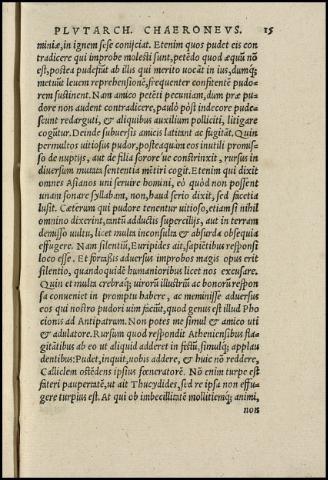 PLVTARCH. CHAERONEVS. 15
miniæ, in ignem sese conijciat. Etenim quos pudet eis con
tradicere qui improbe molesti sunt, petẽdo quod æquũ nõ
est, postea pudefiũt ab illis qui merito uocãt in ius, dumq;
metuũt leuem reprehensionẽ, frequenter consitentẽ pudo-
rem sustinent. Nam amico petẽti pecuniam, dum præ pu-
dore non audent contradicere, paulò pòst indecore pude-
scunt redarguti, & aliquibus auxilium polliciti, litigare
cogũtur. Deinde subuersis amicis latitant ac fugitãt. Quin
permultos uitiosus pudor, posteaquam eos inutili promis-
so de nuptijs, aut de filia sorore ue constrinxit, rursus in
diuersum mutata sententia mẽtiri cogit. Etenim qui dixit
omnes Asianos uni seruire homini, eò quòd non possent
unam sonare syllabam, non, haud serio dixit, sed facetia
lusit. Cæterum qui pudore tenentur uitioso, etiam si nihil
omnino dixerint, tantũ adductis supercilijs, aut in terram
demisso uultu, licet multa inconsulta & absurda obsequia
effugere. Nam silentiũ, Euripides ait, sapiẽtibus responsi
loco esse. Et fortaßis aduersus improbos magis opus erit
silentio, quandoquidẽ humanioribus licet nos excusare.
Quin et multa crebraq; uirorũ illustriũ ac bonorũ respon
sa conueniet in promptu habere, ac meminisse aduersus
eos qui nostro pudori uim faciũt, quod genus est illud Pho
cionis ad Antipatrum. Non potes me simul & amico uti
& adulatore. Rursum quod respondit Atheniensibus fla-
gitãtibus ab eo ut aliquid adderet in festũ, simulq; applau
dentibus: Pudet, inquit, uobis addere, & huic nõ reddere,
Calliclem ostẽdens ipsius fœneratorẽ. Nõ enim turpe est
fateri paupertatẽ, ut ait Thucydides, sed re ipsa non effu-
gere turpius est. At qui ob imbecillitatẽ mollitiemq; animi,
non